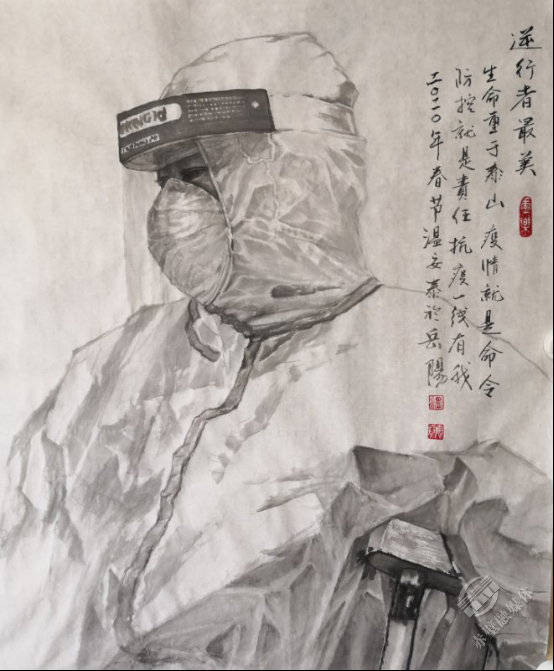 逆行者最美
生命重于泰山 疫情就是命令
防控就是責任 抗疫一线有我
二〇二〇年春节温安泰於岳陽
赤壁融媒体